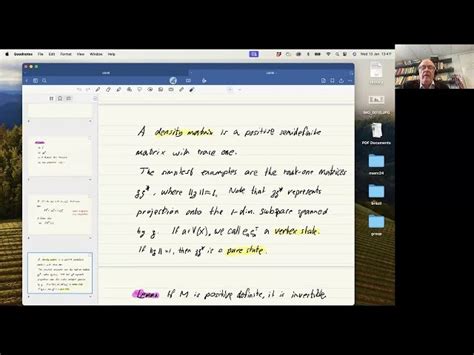 Wed 10 Jan
A density matrix is a positive semidefinite
matrix with trace one.
The simplest examples are the rank-one matrices
zz*, where ||z||=1. Note that zz* represents
projection onto the 1-dim. subspace spanned
by z. If a∈V(X), we call a vertex state.
If ||z||=1, then zz* is a pure state.
Lemma If M is positive definite, it is invertible.
PDF Documents
group